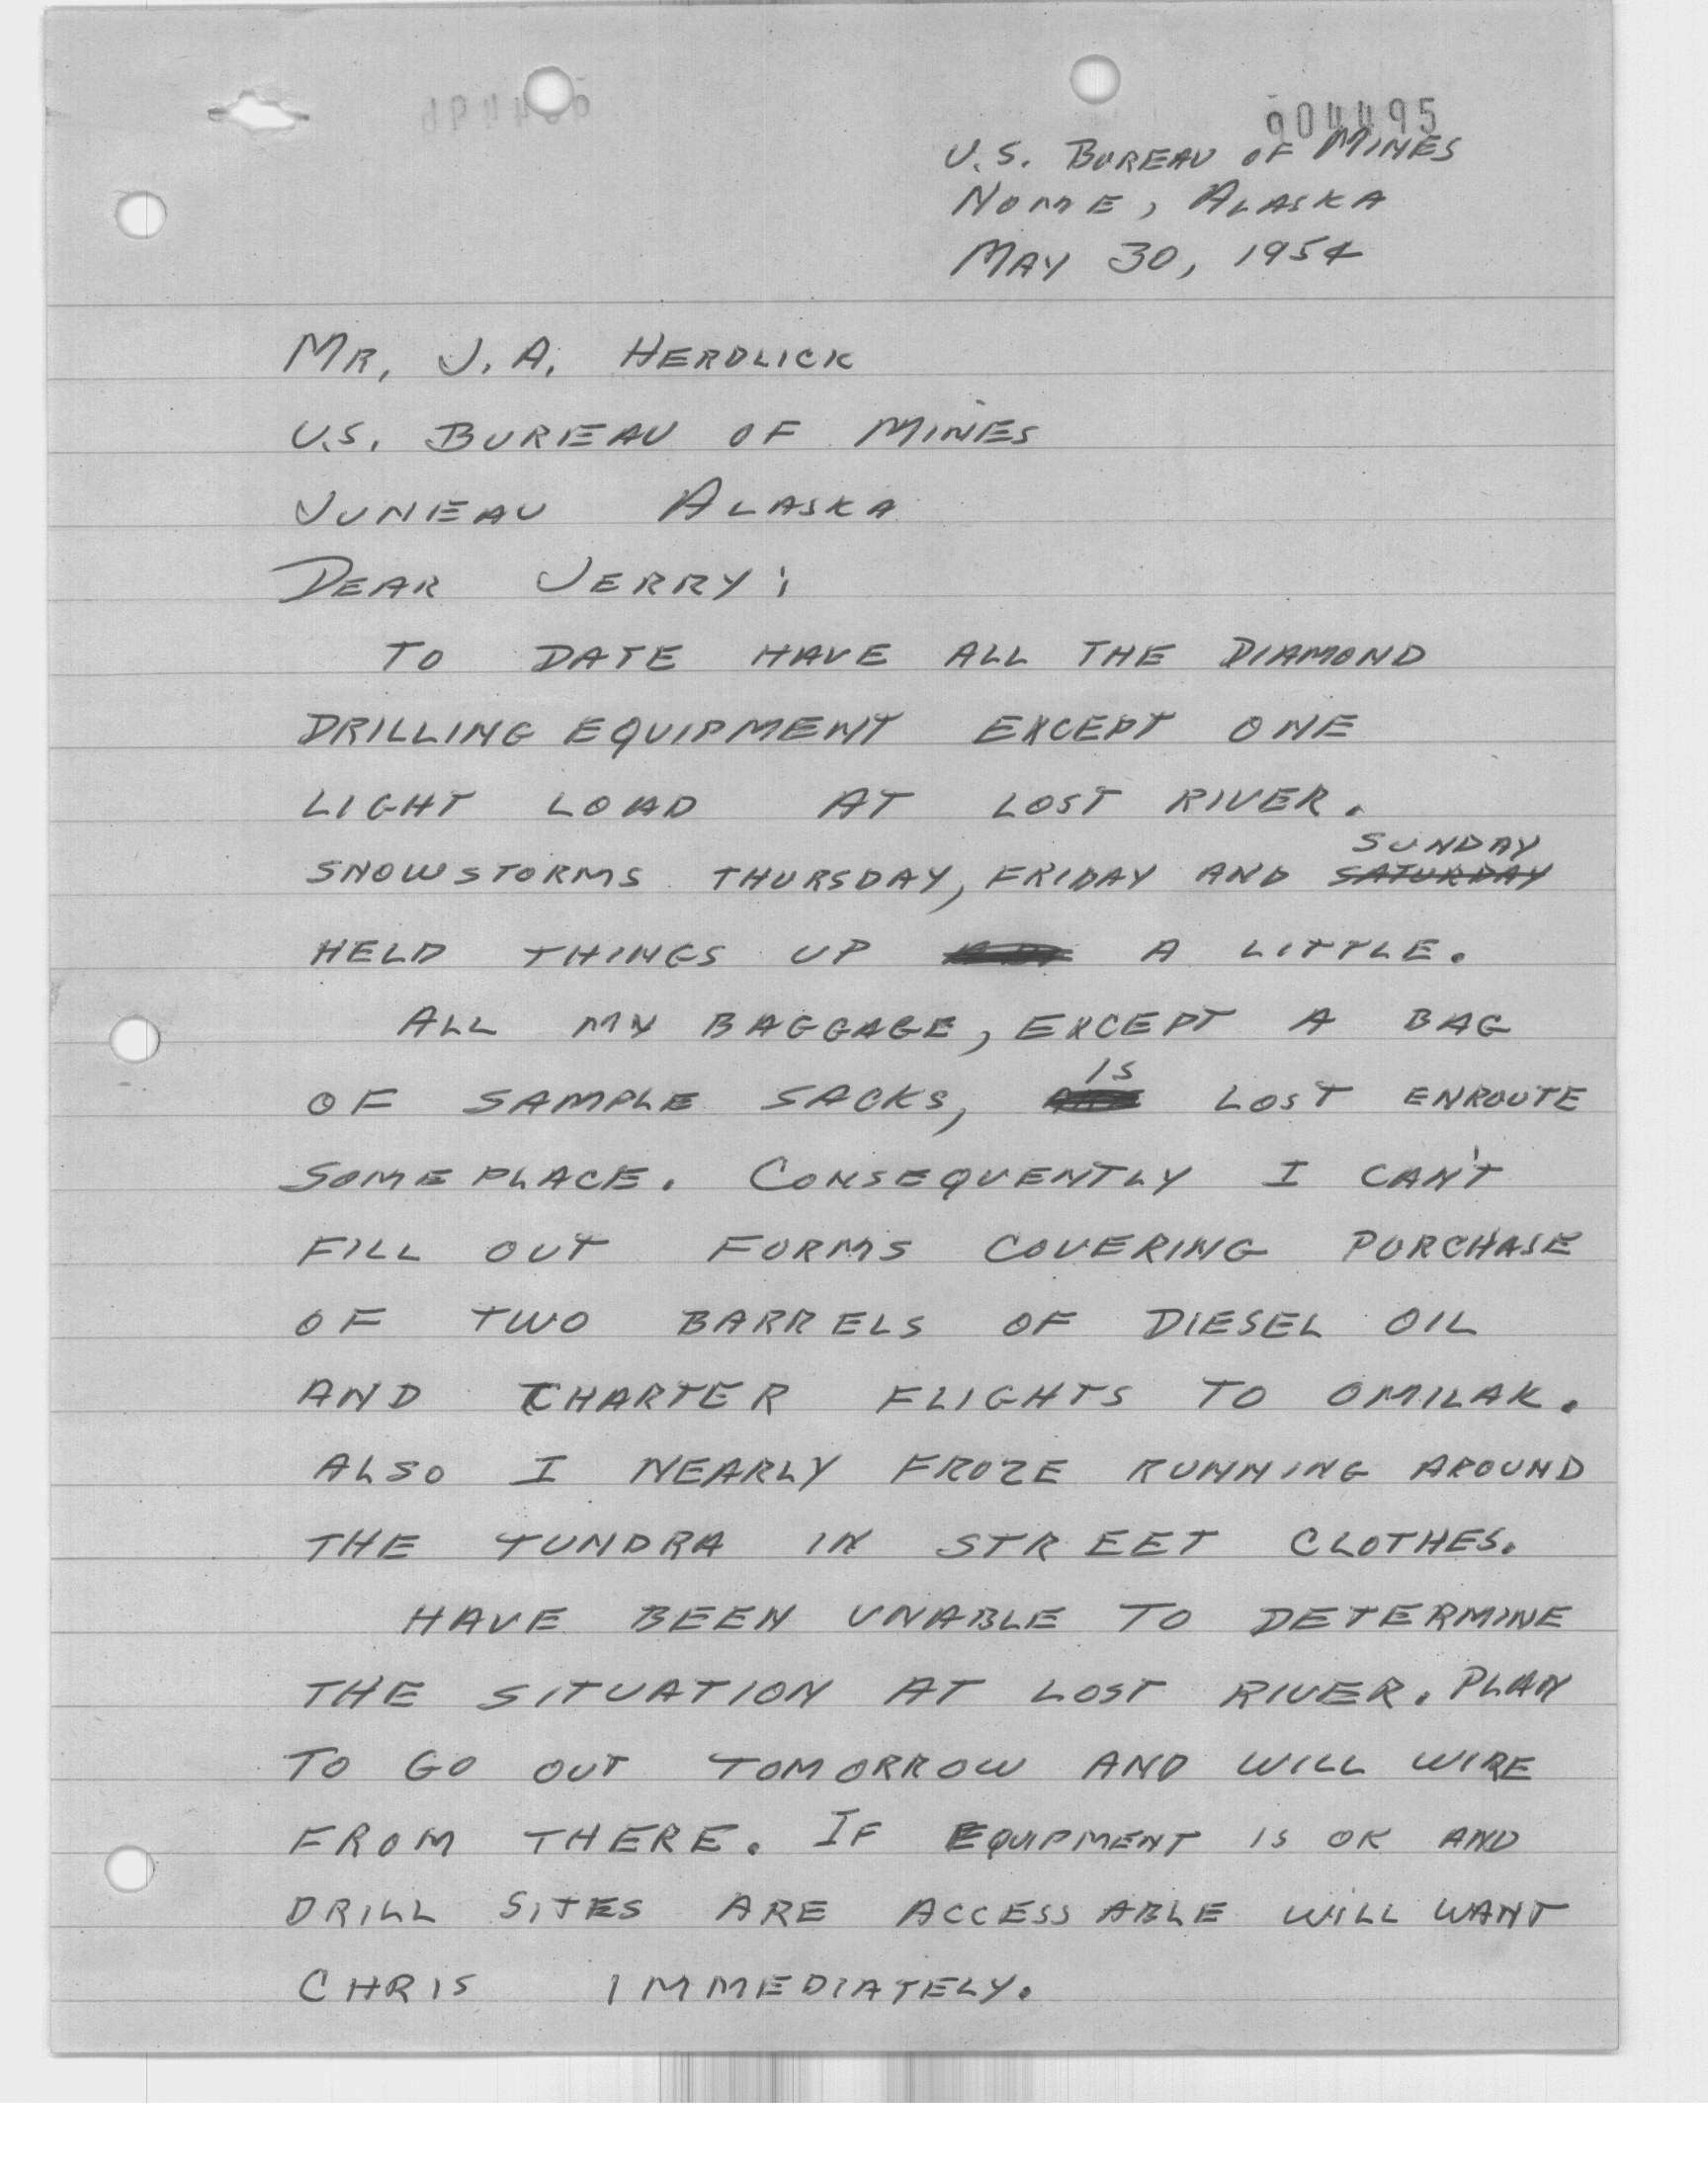 004495
U.S. BUREAU OF MINES
NOME, ALASKA
MAY 30, 1954
MR. J. A. HERDLICK
U.S. BUREAU OF MINES
JUNEAU ALASKA
DEAR JERRY:
TO DATE HAVE ALL THE DIAMOND
DRILLING EQUIPMENT EXCEPT ONE
LIGHT LOAD AT LOST RIVER.
SUNDAY
SNOWSTORMS THURSDAY, FRIDAY AND SATURDAY
HELD THINGS UP A LITTLE.
ALL MY BAGGAGE, EXCEPT A BAG
IS
OF SAMPLE SACKS, LOST ENROUTE
SOMEPLACE. CONSEQUENTLY I CAN'T
FILL OUT FORMS COVERING PURCHASE
OF TWO BARRELS OF DIESEL OIL
AND CHARTER FLIGHTS TO OMILAK.
ALSO I NEARLY FROZE RUNNING AROUND
THE TUNDRA IN STREET CLOTHES.
HAVE BEEN UNABLE TO DETERMINE
THE SITUATION AT LOST RIVER. PLAN
TO GO OUT TOMORROW AND WILL WIRE
FROM THERE. IF EQUIPMENT IS OK AND
DRILL SITES ARE ACCESSABLE WILL WANT
CHRIS IMMEDIATELY.